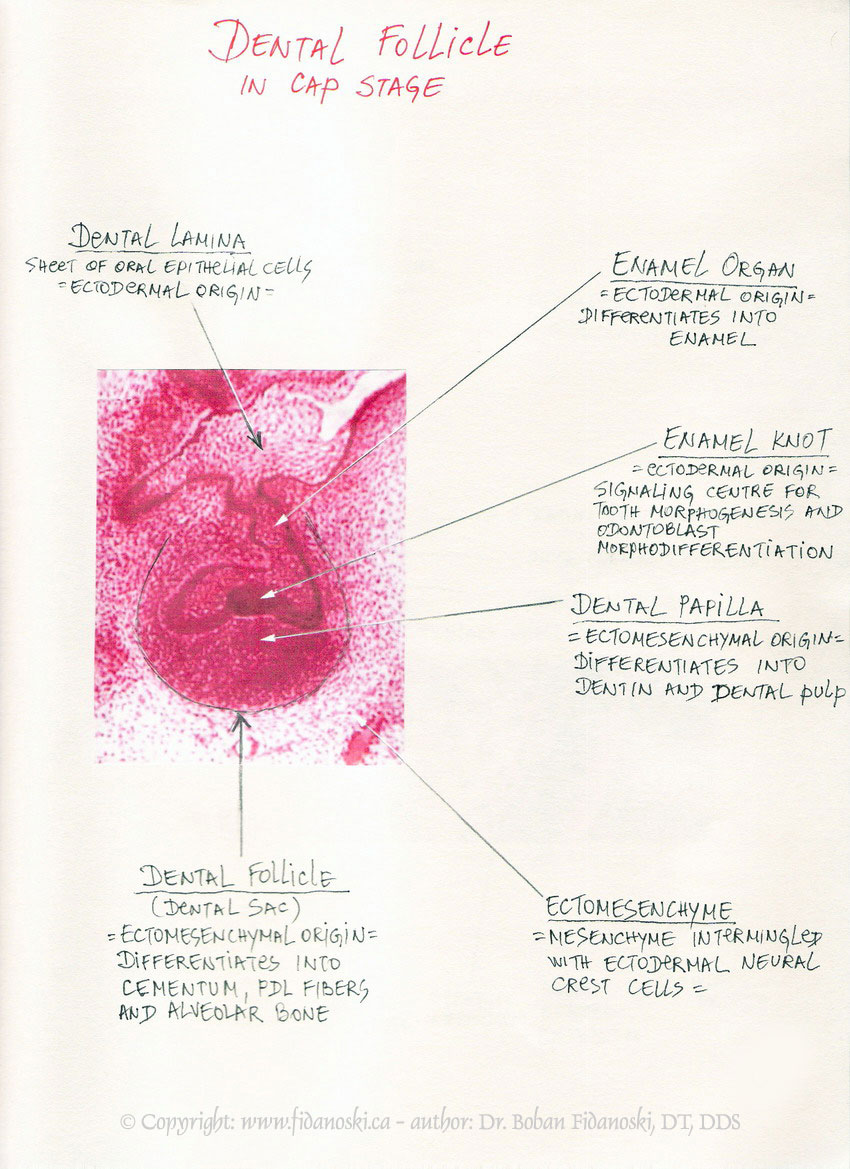 DENTAL FOLLICLE
IN CAP STAGE
DENTAL LAMINA
SHEET OF ORAL EPITHELIAL CELLS
=ECTODERMAL ORIGIN=
ENAMEL ORGAN
=ECTODERMAL ORIGIN=
DIFFERENTIATES INTO
ENAMEL
ENAMEL KNOT
=ECTODERMAL ORIGIN=
SIGNALING CENTRE FOR
TOOTH MORPHOGENESIS AND
ODONTOBLAST
MORPHODIFFERENTIATION
DENTAL PAPILLA
=ECTOMESENCHYMAL ORIGIN=
DIFFERENTIATES INTO
DENTIN AND DENTAL PULP
DENTAL FOLLICLE
(DENTAL SAC)
=ECTOMESENCHYMAL ORIGIN=
DIFFERENTIATES INTO
CEMENTUM, PDL FIBERS
AND ALVEOLAR BONE
ECTOMESENCHYME
=MESENCHYME INTERMINGLED
WITH ECTODERMAL NEURAL
CREST CELLS=
© Copyright: www.fidanoski.ca - author: Dr. Boban Fidanoski, DT, DDS